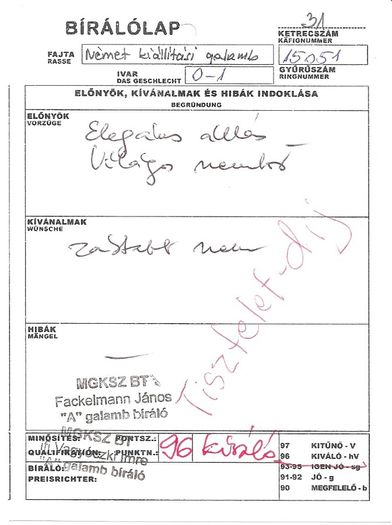 BÍRÁLÓLAP
31
KETRECSZÁM
KÄFIGNUMMER
FAJTA
RASSE
Német kiállítási galamb
15051
GYŰRŰSZÁM
RINGNUMMER
IVAR
DAS GESCHLECHT
0-1
ELŐNYÖK, KÍVÁNALMAK ÉS HIBÁK INDOKLÁSA
BEGRÜNDUNG
ELŐNYÖK
VORZÜGE
Elegáns állás
Világos
KÍVÁNALMAK
WÜNSCHE
HIBÁK
MÄNGEL
Tisztelet-díj
MGKSZ BT
Fackelmann János
"A" galamb bíráló
MGKSZ BT
Imre
"A" galamb bíráló
MINŐSÍTÉS: PONTSZ.:
QUALIFIKATION: PUNKTN.:
96 kiváló
BÍRÁLÓ:
PREISRICHTER:
97 KITŰNŐ - V
96 KIVÁLÓ - hV
93-95 IGEN JÓ - sg
91-92 JÓ - g
90 MEGFELELŐ - b